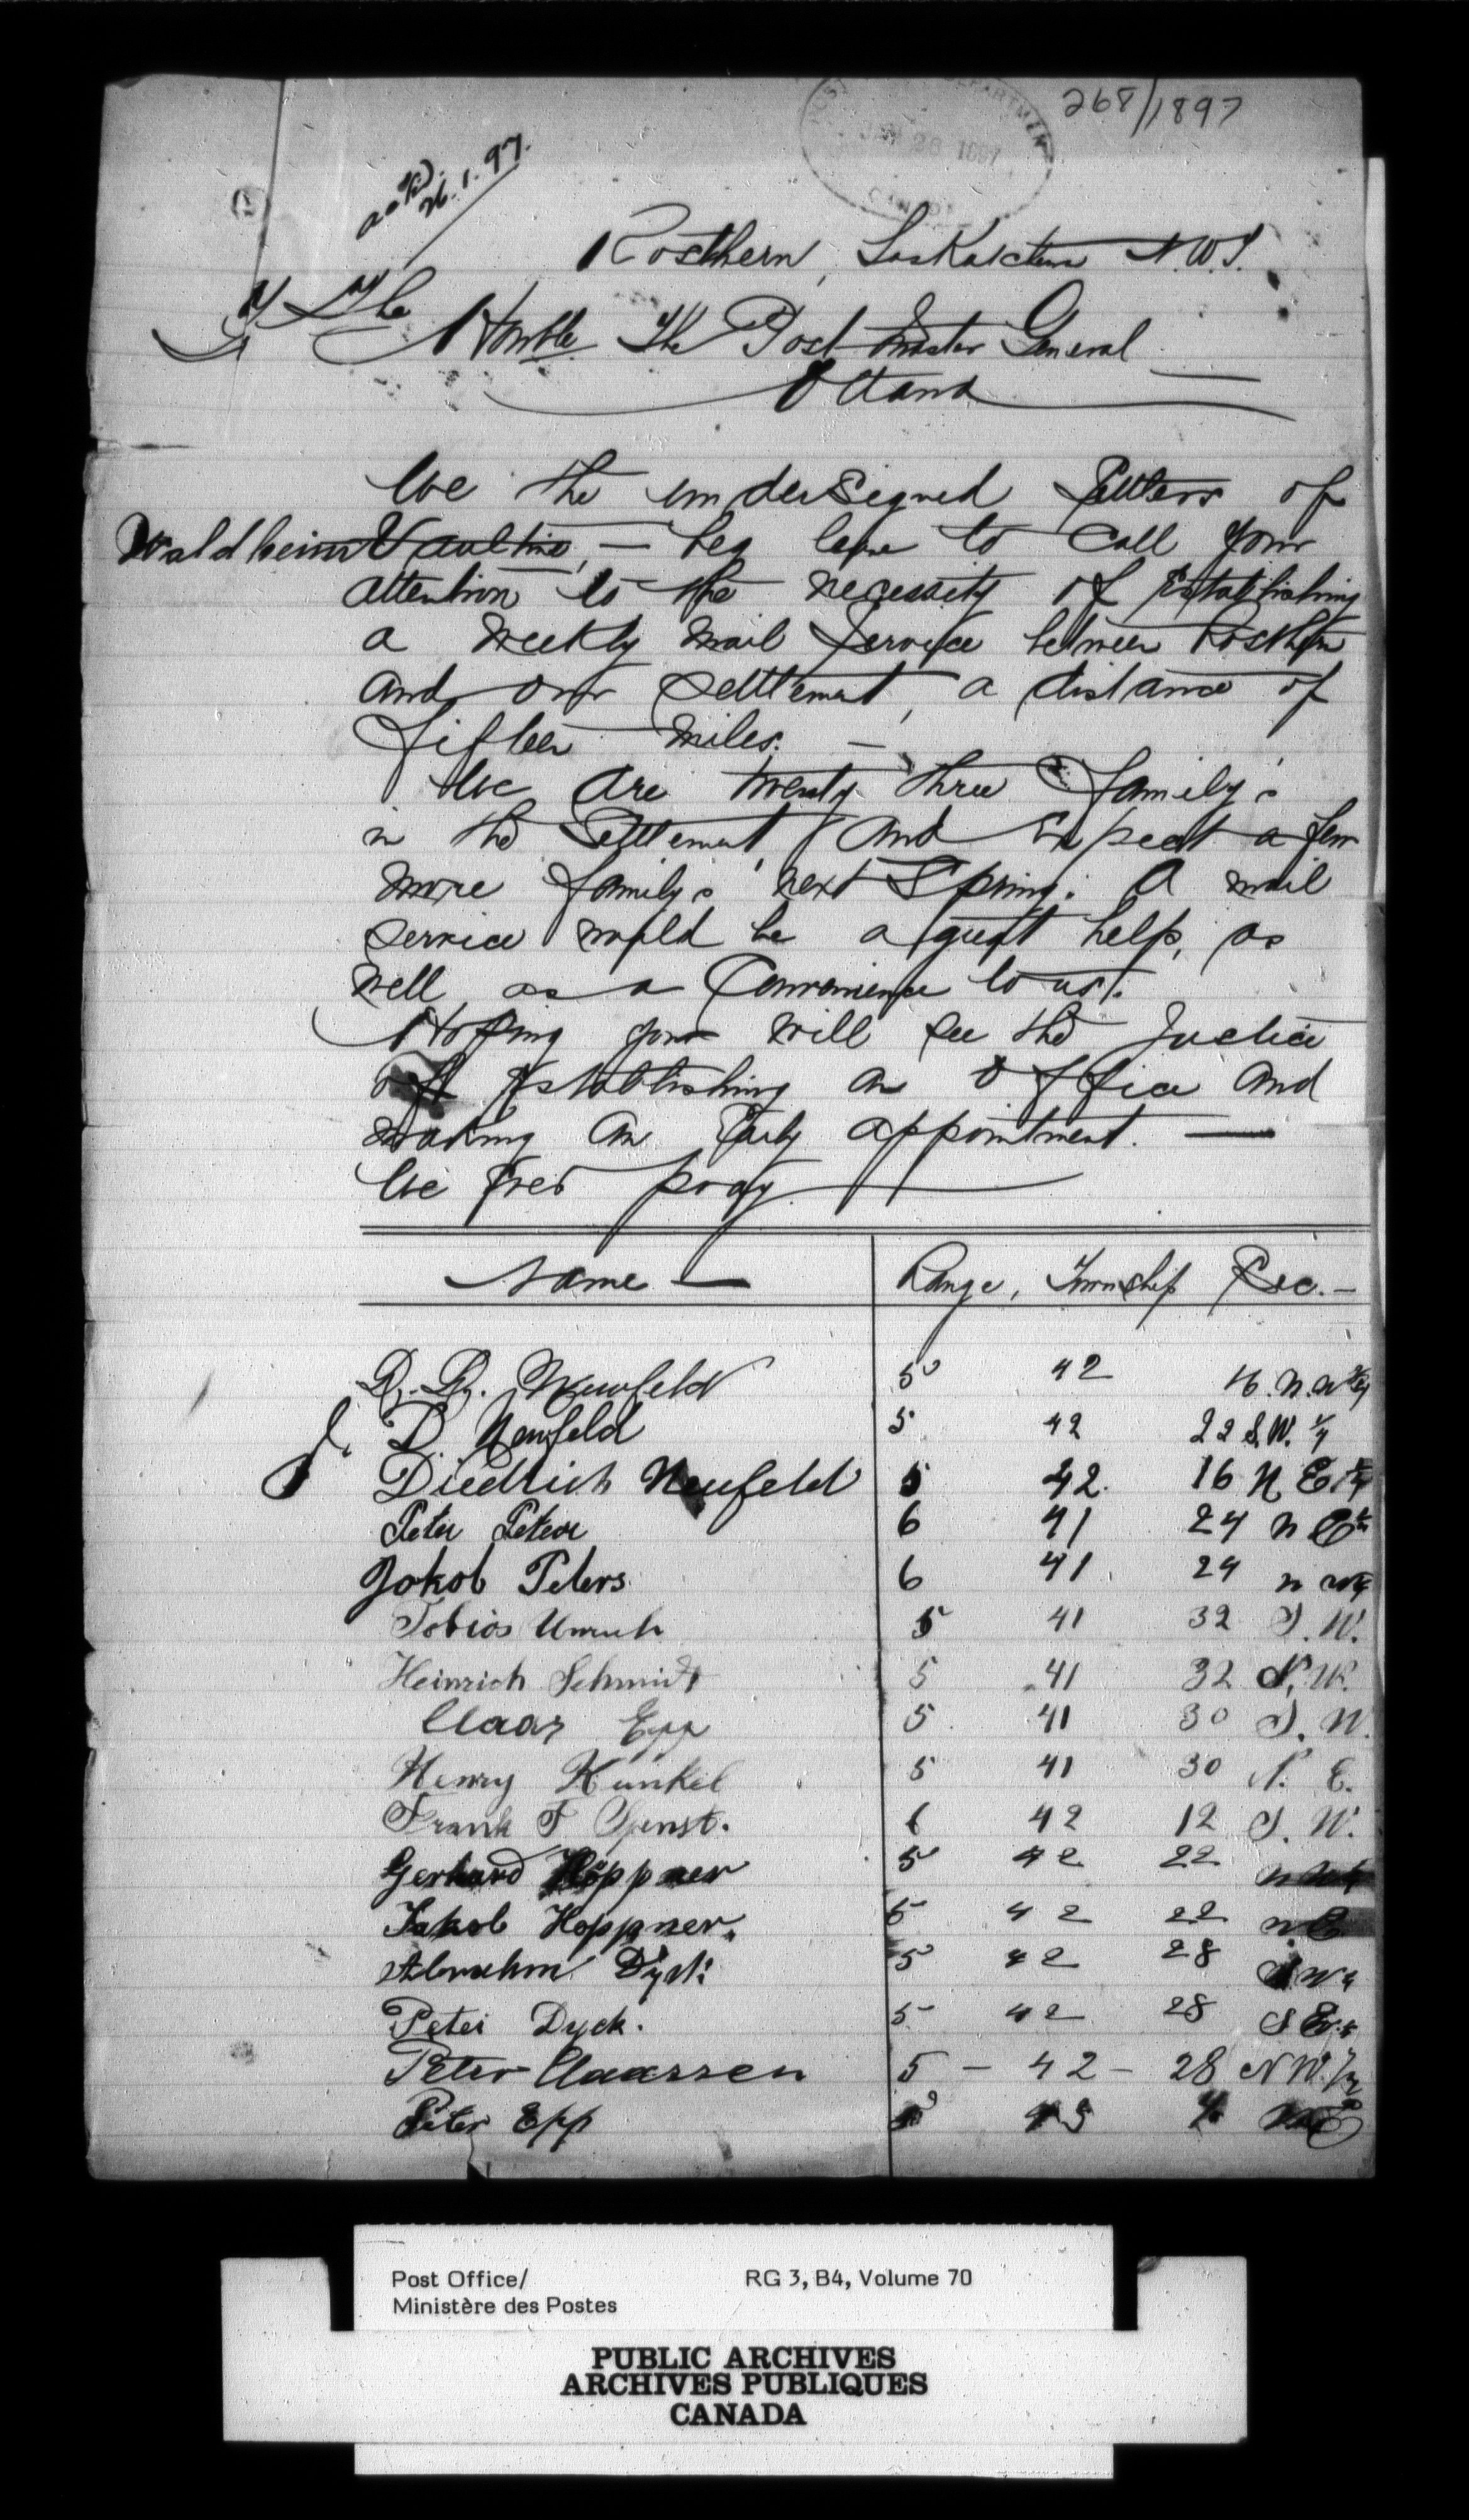 268/1897
POST DEPARTMEN
JAN 26 1897
CANADA
ackd.
26.1.97.
Rosthern, Saskatchewn N.W.T.
To The
Honble The Post Master General
Ottawa
We the undersigned Settlers of
Waldheim — beg leave to call your
attention to the necessity of Establishing
a weekly mail Service between Rosthern
and our Settlement, a distance of
fifteen miles. —
We are twenty three family's
in the Settlement, and Expect a few
more family's next Spring. A mail
Service would be a great help, as
well as a Convenience to us.
Hoping you will see the Justice
of Establishing an Office and
making an Early appointment. —
We Ever pray
Name — Range, Township Sec. —
D. D. Neufeld 5 42 16 N.W 1/4
J. D. Neufeld 5 42 22 S.W. 1/4
Diedrich Neufeld 5 42 16 N E 1/4
Peter Peters 6 41 24 N E 1/4
Jakob Peters 6 41 24 n w 1/4
Tobias Unruh 5 41 32 S. W.
Heinrich Schmidt 5 41 32 N. W.
Claas Epp 5 41 30 S. W.
Henry Kunkel 5 41 30 N. E.
Frank F 6 42 12 S. W.
Gerhard Höppner 5 42 22 n w 1/4
Jakob Hoppner. 5 42 22 n E
Abrahm Dyck 5 42 28 S W 4
Peter Dyck. 5 42 28 S E. 4
Peter Claassen 5 – 42 – 28 N W. 1/4
Peter Epp 5 43 4 E
Post Office/ RG 3, B4, Volume 70
Ministère des Postes
PUBLIC ARCHIVES
ARCHIVES PUBLIQUES
CANADA